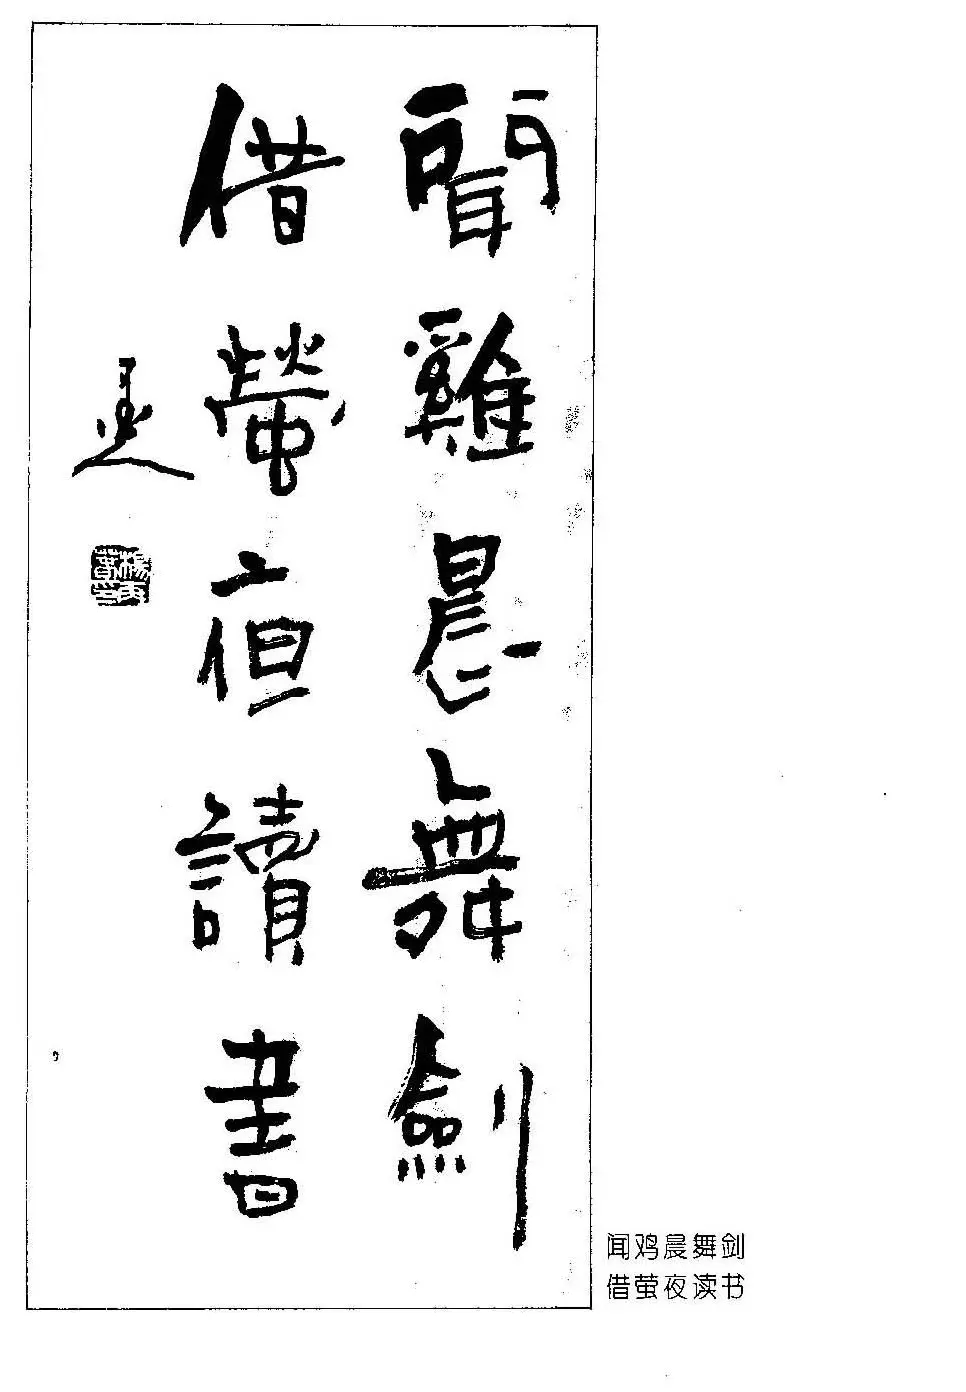 聞雞晨舞劍
借螢夜讀書
闻鸡晨舞剑
借萤夜读书